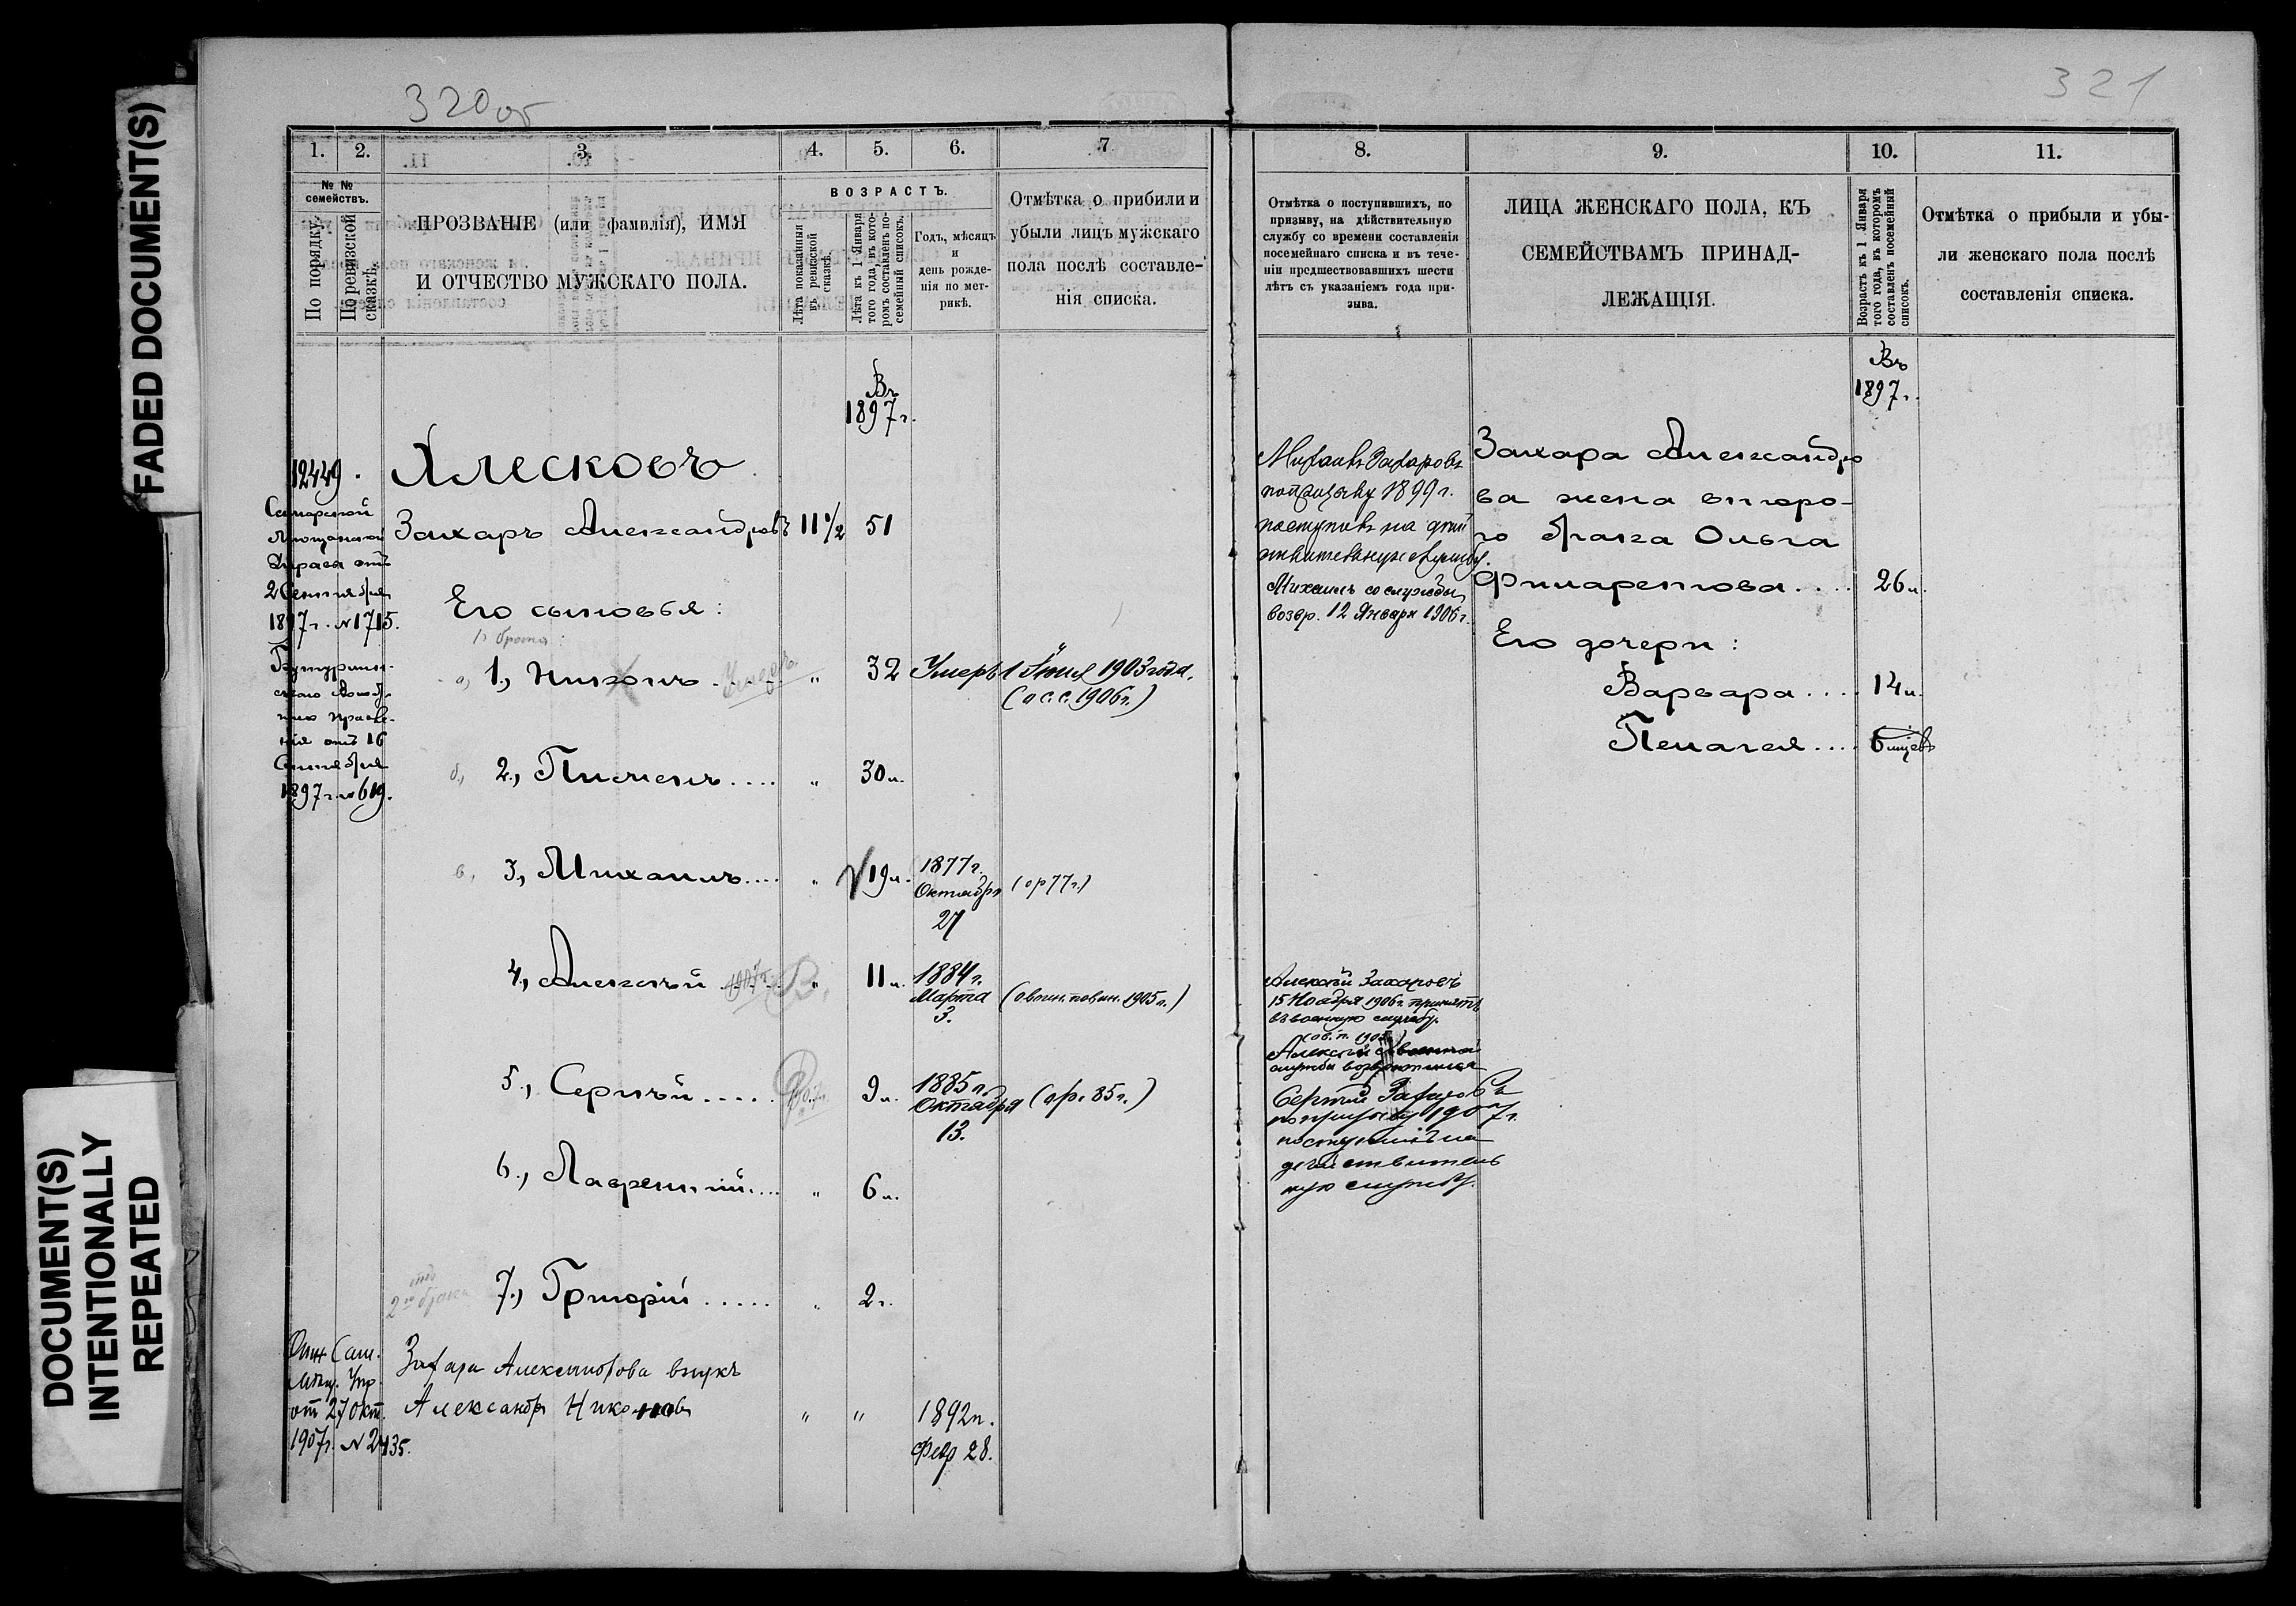 FADED DOCUMENT(S)
DOCUMENT(S)
INTENTIONALLY
REPEATED
320 об
1.
2.
3.
4.
5.
6.
7
№ №
семействъ.
По порядку.
По ревизской
сказкѣ.
ПРОЗВАНІЕ (или фамилія), ИМЯ
И ОТЧЕСТВО МУЖСКАГО ПОЛА.
ВОЗРАСТЪ.
Лѣта показанныя
въ ревизской
сказкѣ.
Лѣта къ 1 Января
того года, въ кото-
ромъ составленъ по-
семейный списокъ.
Годъ, мѣсяцъ
и
день рожде-
нія по мет-
рикѣ.
Отмѣтка о прибыли и
убыли лицъ мужскаго
пола послѣ составле-
нія списка.
Въ
1897 г.
12449.
Самарской
Мѣщанской
Управы отъ
2 Сентября
1897 г. № 1715.
правле-
нія отъ 16
Сентября
1897 г. № 619.
Хлесковъ
Захаръ Александровъ 11½ 51
Его сыновья:
1 брака:
а) 1., Никонъ .... Умеръ " 32 Умеръ 1 Іюня 1903 года.
(о с.с. 1906 г.)
б., 2., Пименъ.... " 30 л.
в., 3., Михаилъ.... " √ 19 л. 1877 г.
Октября (ор 77 г.)
27
4., Алексѣй " 11 л. 1884 г.
Марта (о воин. повин. 1905 г.)
3.
5., Сергѣй..... 9 л. 1885 г.
Октября (ор. 85 г.)
13.
6., Лаврентій.... " 6 л.
отъ
2го брака 7., Григорій ..... " 2 г.
Отн. Сам.
Мѣщ. Упр.
от 27 окт.
1907 г. № 2435.
Захара Александрова внукъ
Александръ Никоновъ " " 1892 г.
Февр 28.
321
8.
9.
10.
11.
Отмѣтка о поступившихъ, по
призыву, на дѣйствительную
службу со времени составленія
посемейнаго списка и въ тече-
ніи предшествовавшихъ шести
лѣтъ съ указаніемъ года при-
зыва.
ЛИЦА ЖЕНСКАГО ПОЛА, КЪ
СЕМЕЙСТВАМЪ ПРИНАД-
ЛЕЖАЩІЯ.
Возрастъ къ 1 Января
того года, въ которомъ
составленъ посемейный
списокъ.
Отмѣтка о прибыли и убы-
ли женскаго пола послѣ
составленія списка.
Въ
1897 г.
Михаилъ Захаровъ
по призыву 1899 г.
поступилъ на дѣй
ствительную службу.
Михаилъ со службы
возвр. 12 Января 1906 г.
Захара Александро
ва жена второ-
го брака Ольга
Филаретова.... 26 л.
Его дочери:
Варвара.... 14 л.
Пелагея.... 6 мѣсяц.
Алексѣй Захаровъ
15 Ноября 1906 г. принятъ
въ военную службу.
(об. п. 1905 г.)
Алексѣй съ военной
службы возвратился
Сергѣй Захаровъ
по призыву 1907 г.
поступилъ на
действитель
ную службу.